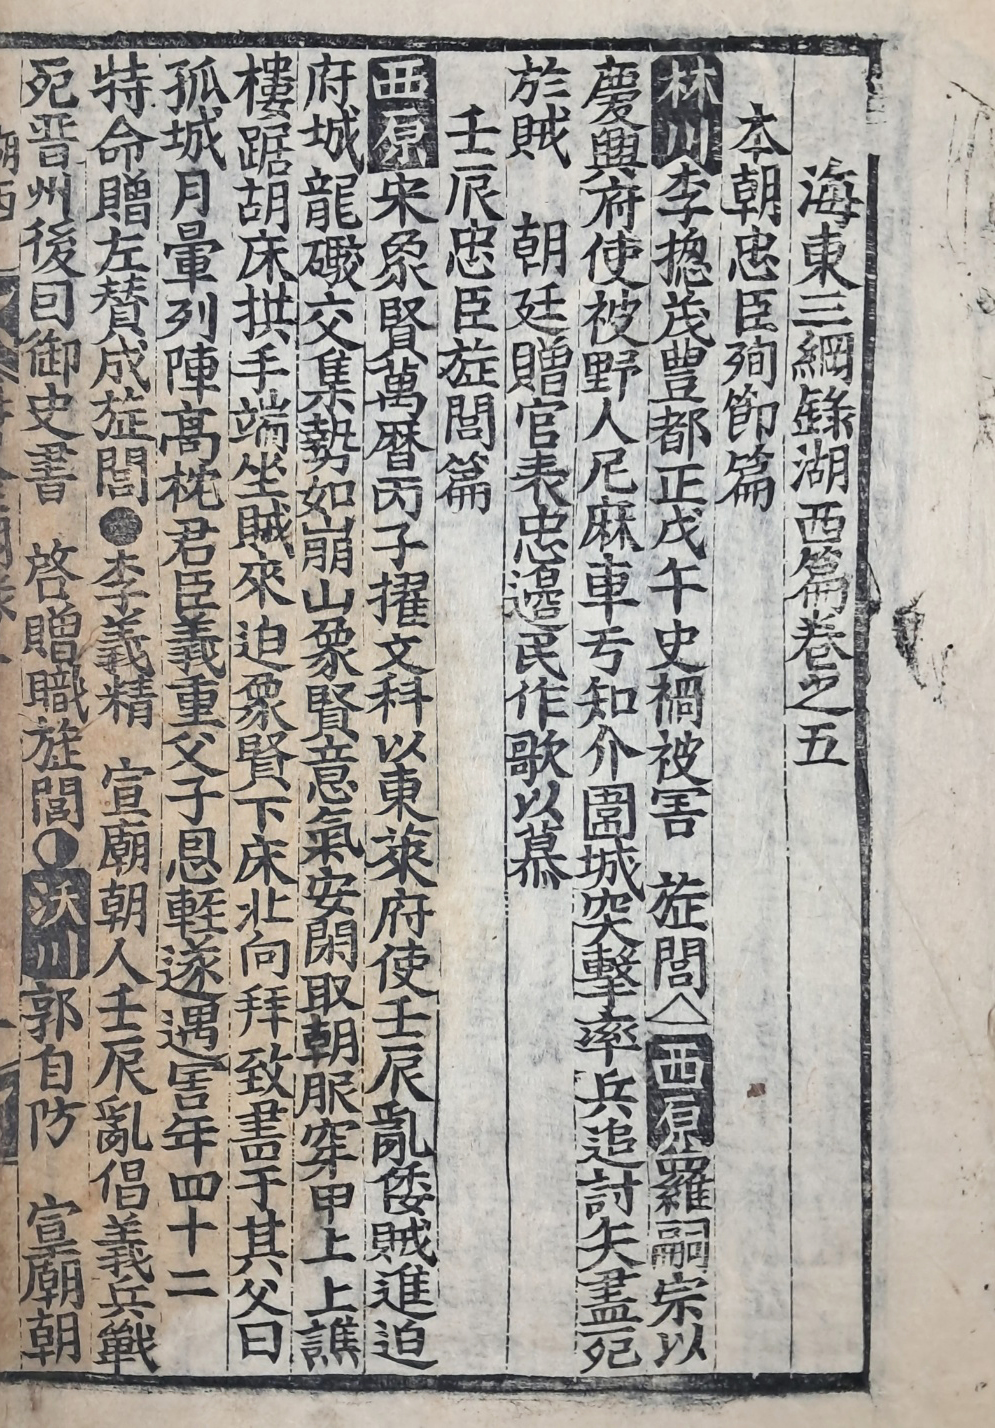 海東三綱錄湖西篇卷之五
本朝忠臣殉節篇
林川李摠茂豊都正戊午史禍被害 旌閭△西原羅嗣宗以
慶興府使被野人尼麻車亏知介圍城突擊率兵追討矢盡死
於賊 朝廷贈官表忠邉民作歌以慕
壬辰忠臣旌閭篇
西原宋象賢萬暦丙子擢文科以東萊府使壬辰亂倭賊進迫
府城龍礟交集勢如崩山象賢意氣安閑取朝服穿甲上上譙
樓踞胡床拱手端坐賊來迫象賢下床北向拜致書于其父曰
孤城月暈列陣高枕君臣義重父子恩輕遂遇害年四十二
特命贈左賛成旌閭●李義精 宣廟朝人壬辰亂倡義兵戰
死晋州後因御史書 啓贈職旌閭●沃川郭自防 宣廟朝